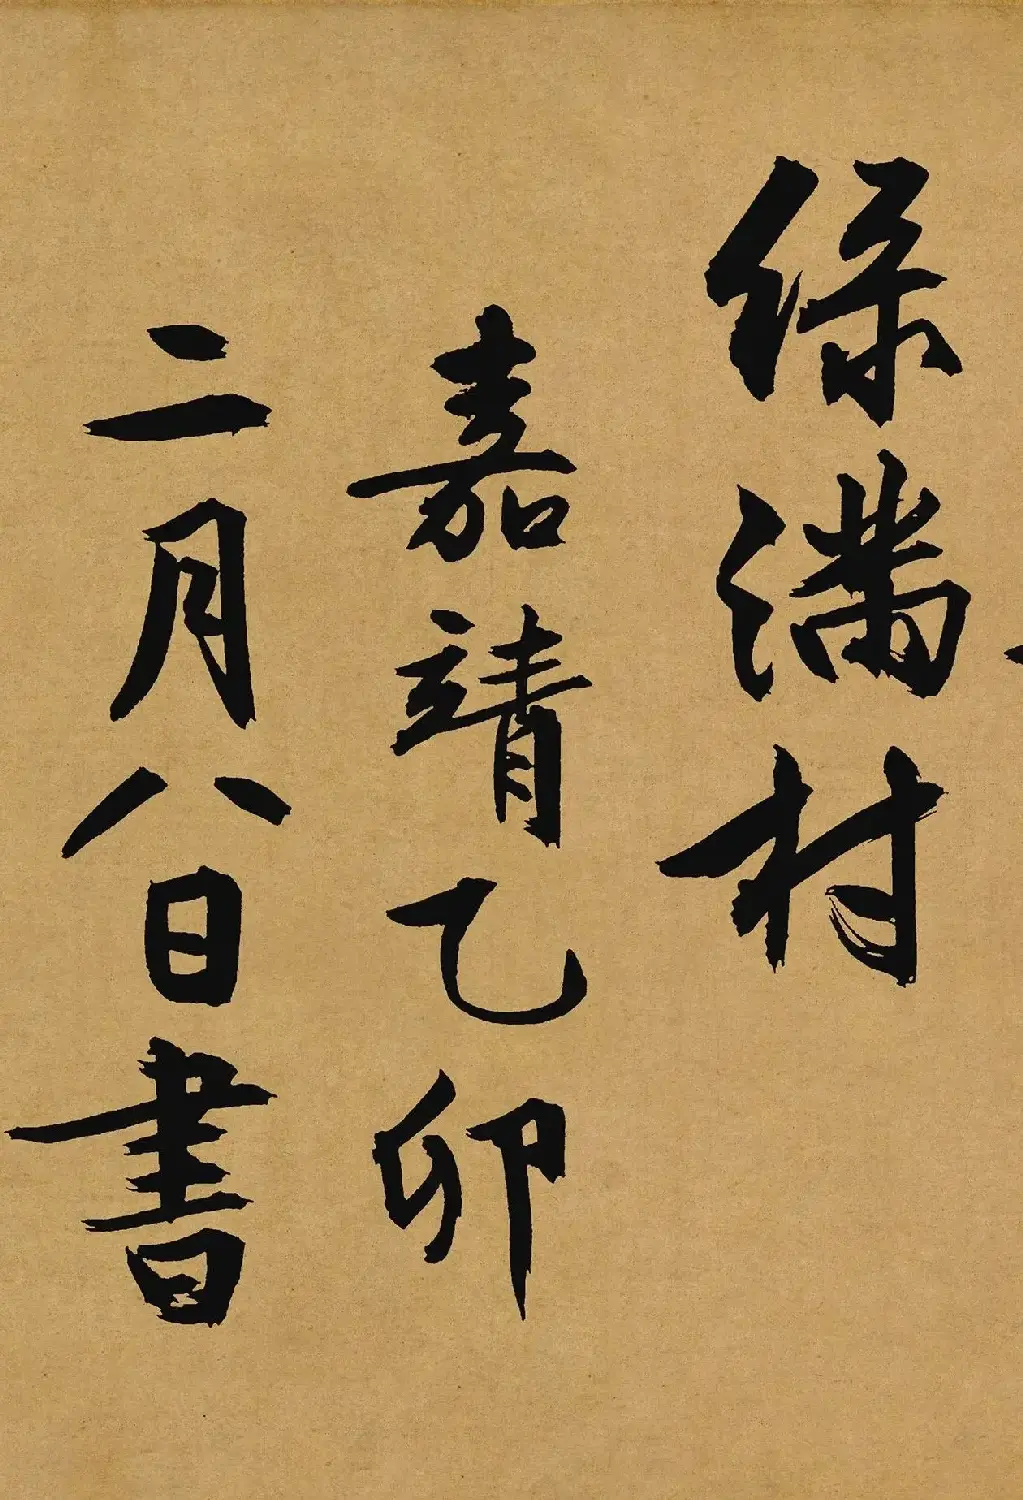 綠滿村
嘉靖乙卯
二月八日書